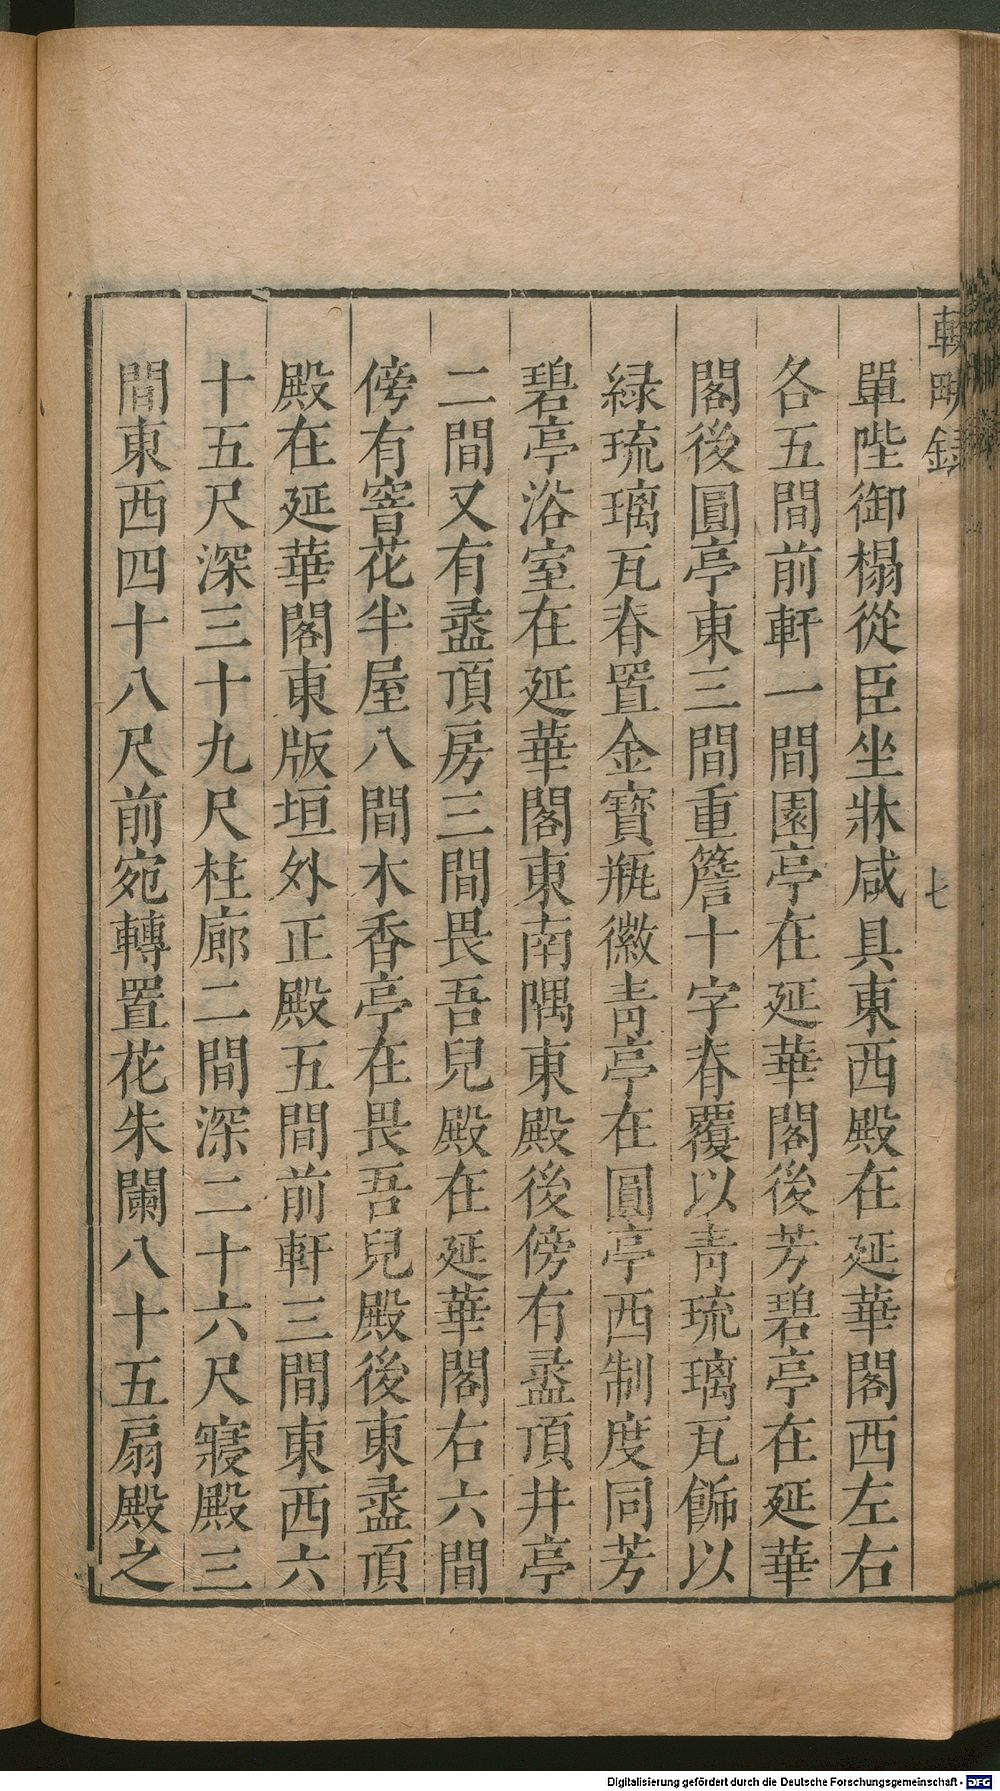 輟畊錄
七
單陛御榻從臣坐牀咸具東西殿在延華閣西左右
各五間前軒一間園亭在延華閣後芳碧亭在延華
閣後圓亭東三間重簷十字脊覆以青琉璃瓦飾以
緑琉璃瓦脊置金寶瓶徽青亭在圓亭西制度同芳
碧亭浴室在延華閣東南隅東殿後傍有盝頂井亭
二間又有盝頂房三間畏吾兒殿在延華閣右六間
傍有窨花半屋八間木香亭在畏吾兒殿後東盝頂
殿在延華閣東版垣外正殿五間前軒三間東西六
十五尺深三十九尺柱廊二間深二十六尺寢殿三
間東西四十八尺前宛轉置花朱闌八十五扇殿之
Digitalisierung gefördert durch die Deutsche Forschungsgemeinschaft - DFG